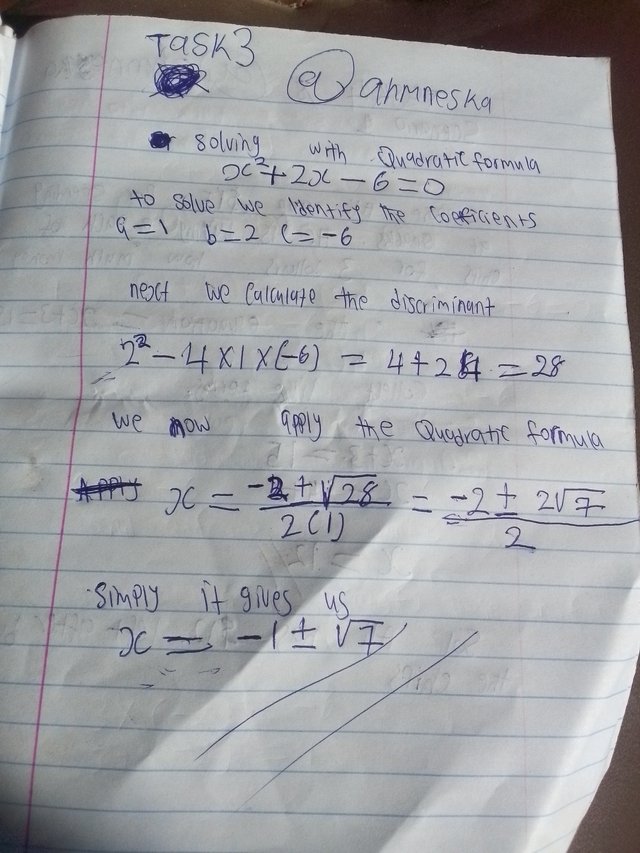 Task3
@ ahmneska
solving with Quadratic formula
x² + 2x - 6 = 0
to solve we Identify the Coefficients
a=1 b=2 c=-6
next we Calculate the discriminant
2² - 4 × 1 × (-6) = 4 + 24 = 28
we now apply the Quadratic formula
x = -2 ± √28 / 2(1) = -2 ± 2√7 / 2
Simply it gives us
x = -1 ± √7